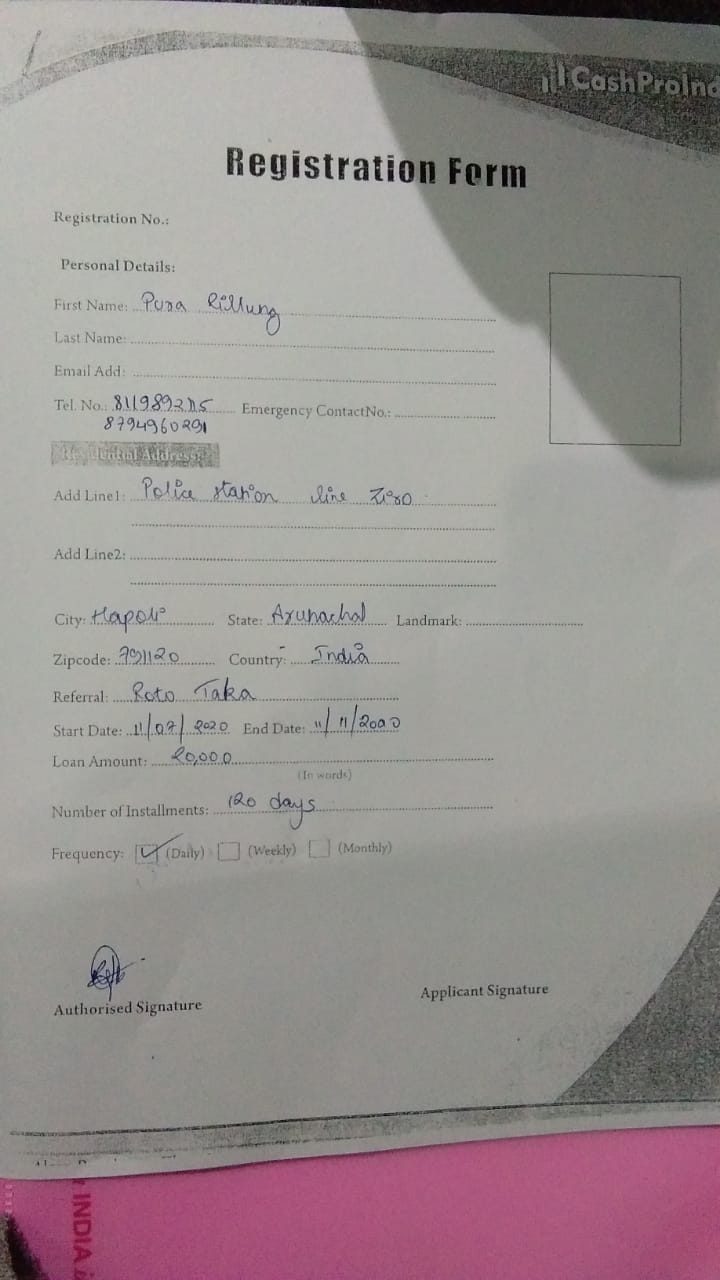 CashProInd
Registration Form
Registration No.:
Personal Details:
First Name: Pura Rillung
Last Name:
Email Add:
Tel. No.: Emergency ContactNo.:
8794960291
Residential Address:
Add Line1: Police station line Ziro
Add Line2:
City: Hapoli State: Arunachal Landmark:
Zipcode: 791120 Country: India
Referral: Roto Taka
Start Date: 11/07/2020 End Date: 11/11/2020
Loan Amount: 20,000
(In words)
Number of Installments: 120 days
Frequency: (Daily) (Weekly) (Monthly)
Authorised Signature
Applicant Signature
INDIA